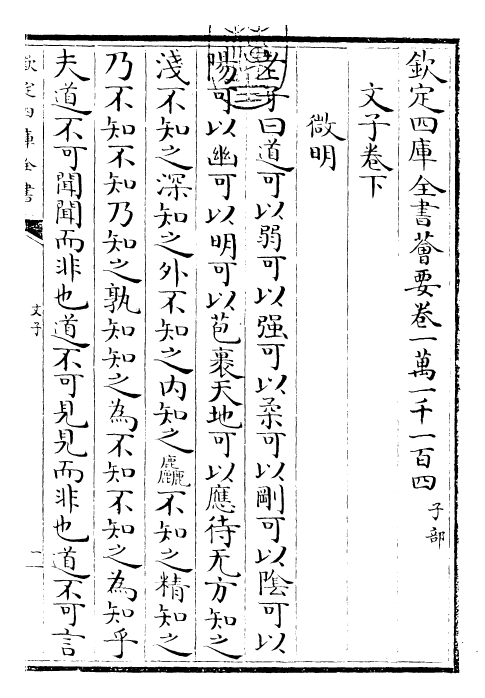 欽定四庫全書薈要卷一萬一千一百四 子部
文子卷下
微明
老子曰道可以弱可以强可以柔可以剛可以陰可以
陽可以幽可以明可以苞裹天地可以應待无方知之
淺不知之深知之外不知之内知之麤不知之精知之
乃不知不知乃知之孰知知之為不知不知之為知乎
夫道不可聞聞而非也道不可見見而非也道不可言
欽定四庫全書
文子